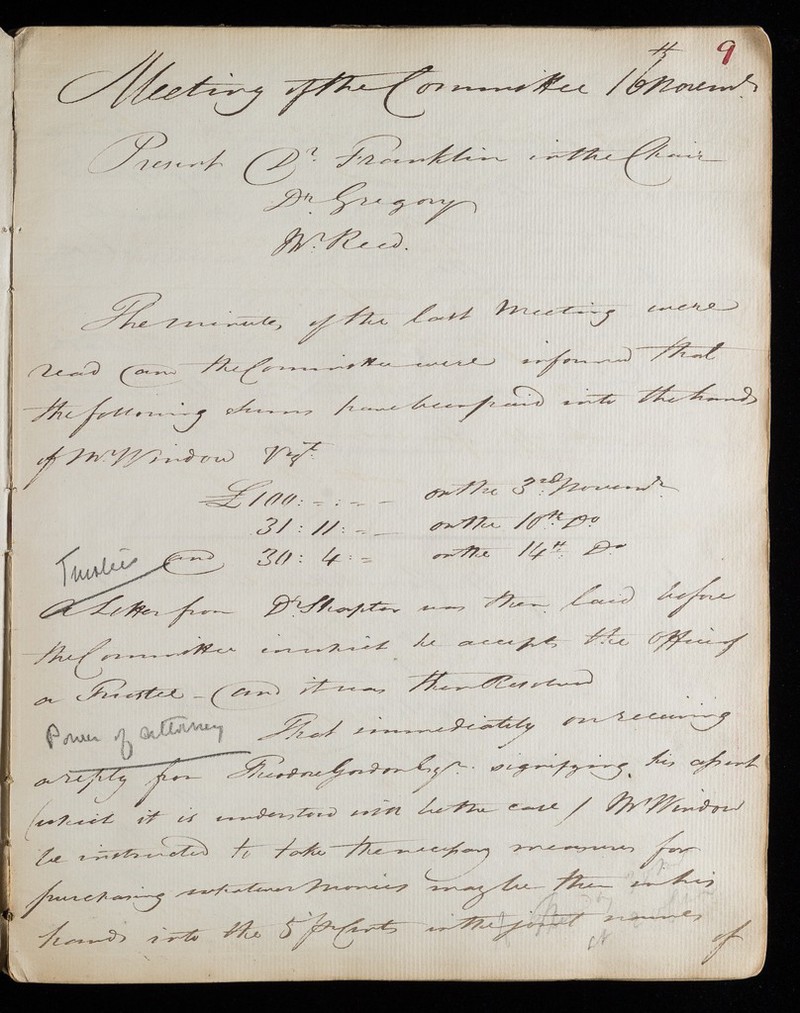 9
Meeting of the Committee 16th Novemr.
Present Dr. Franklin in the Chair
Dr. Gregory
Mr. Reed.
The minutes of the last Meeting were
read and the Committee were informed that
the following sums have been paid into the hands
of Mr. Window Vizt.
£100: - : - - on the 3rd: Novemr.
31 : 11: - - on the 10th: Do
and 30: 4: - on the 14th: Do
Trustees
a Letter from Dr. Skapter was then laid before
the Committee in which he accepts the Office of
a Trustee - and it was then Resolved
Power of attorney
That immediately on receiving
a reply from Theodore Gordon Esqr. signifying his assent
(which it is understood will be the case / Mr. Window
be instructed to take the necessary measures for
purchasing whatever monies may be then in his
hands into the 5 Pr Cents in the joint names
of